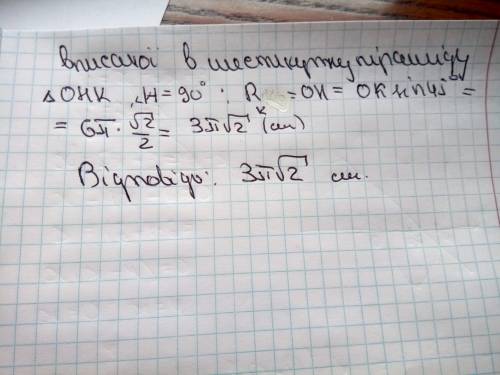 вписаної в шестикутну піраміду
△OHK, ∠H = 90°; Rк = OH = OK sin45° =
= 6π · √2/2 = 3π√2 (см)
Відповідь: 3π√2 см.